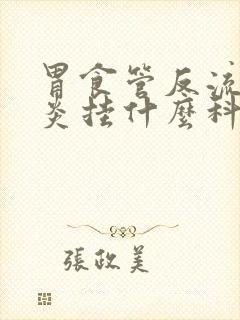 胃食管反流
炎挂什麽科
張政美